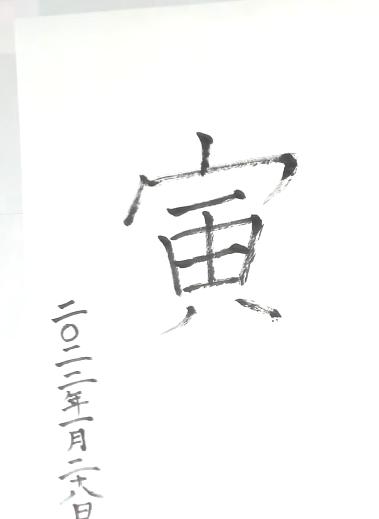 寅
二〇二二年一月二十八日